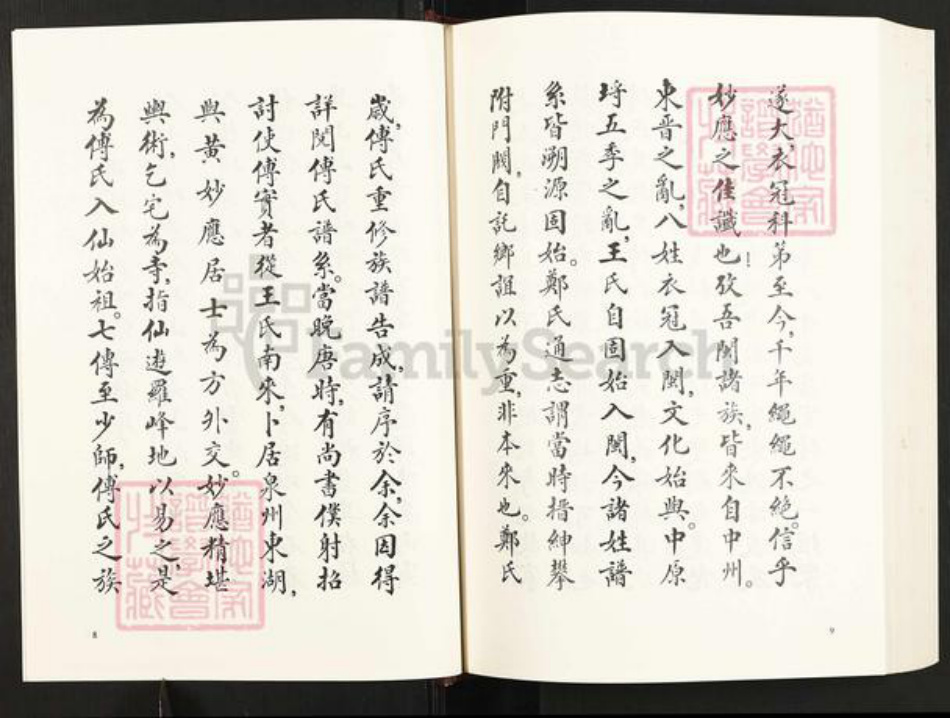 歲,傅氏重修族譜告成,請序於余,余因得
詳閱傅氏譜系。當晚唐時,有尚書僕射招
討使傅實者從王氏南來,卜居泉州東湖,
與黃妙應居士為方外交。妙應精堪
輿術,乞宅為寺,指仙遊羅峰地以易之,是
為傅氏入仙始祖。七傳至少師,傅氏之族
8
遂大,衣冠科第至今,千年繩繩不絕。信乎
妙應之佳讖也!攷吾閩諸族,皆來自中州。
東晋之亂,八姓衣冠入閩,文化始興。中原
埒五季之亂,王氏自固始入閩,今諸姓譜
系皆溯源固始。鄭氏通志謂當時搢紳攀
附門閥,自託鄉誼以為重,非本來也。鄭氏
9
猶他家譜學會收藏
猶他家譜學會收藏
FamilySearch